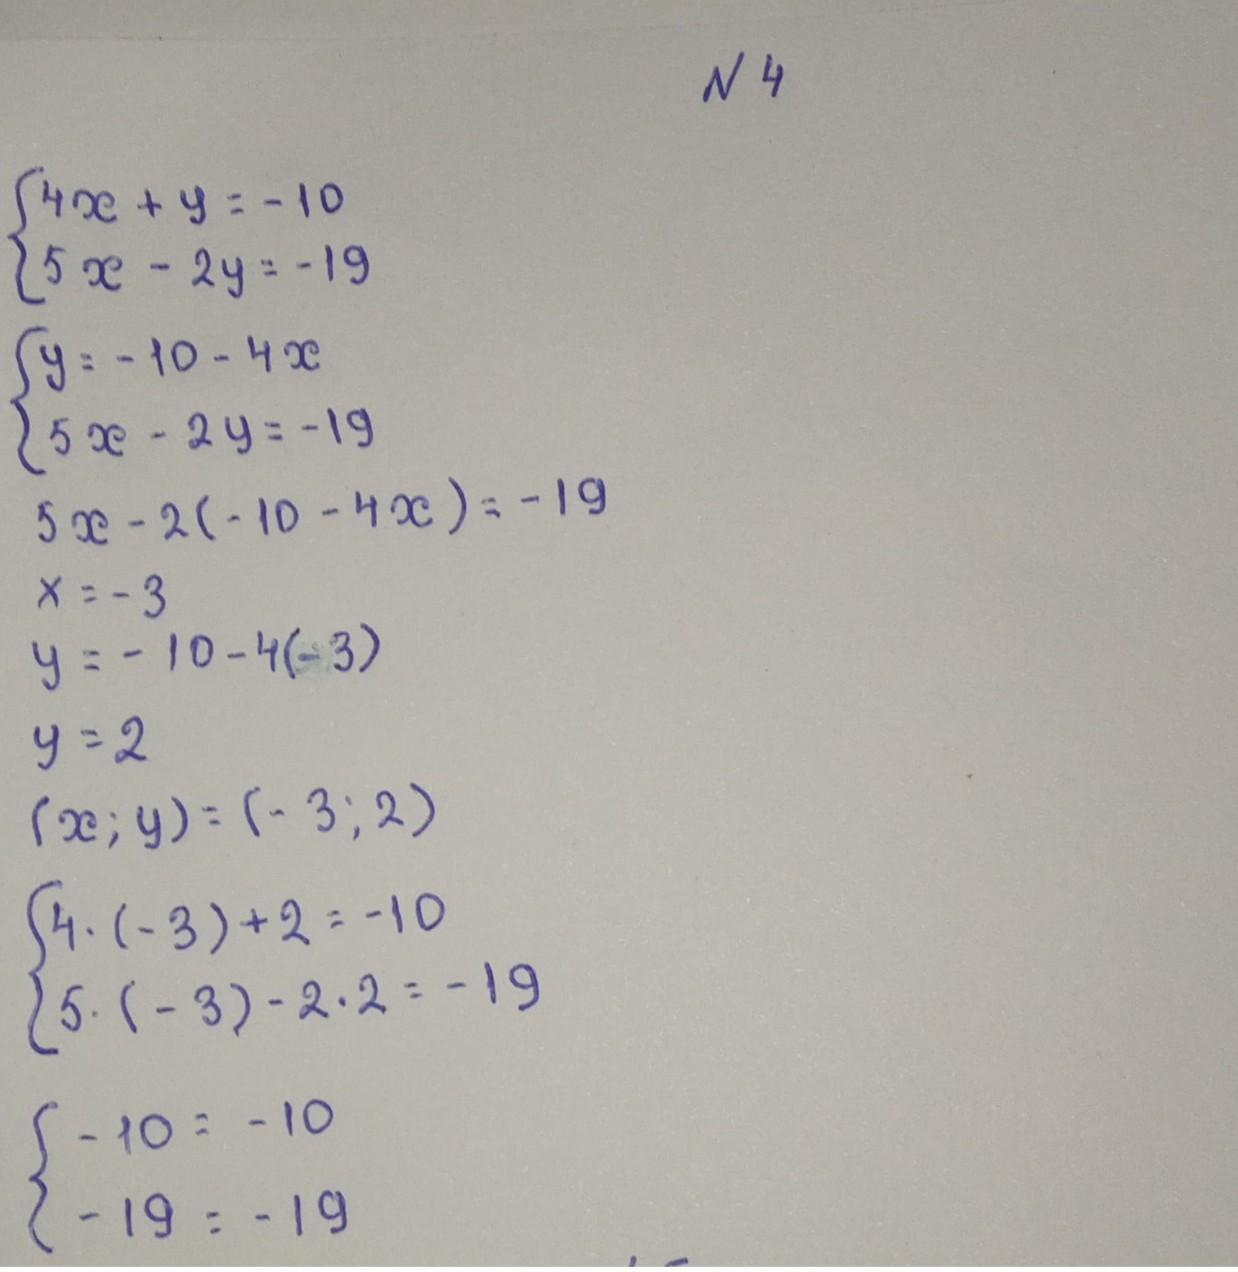 N 4
4x + y = -10
5x - 2y = -19
y = -10 - 4x
5x - 2y = -19
5x - 2(-10 - 4x) = -19
x = -3
y = -10 - 4(-3)
y = 2
(x; y) = (-3; 2)
4·(-3) + 2 = -10
5·(-3) - 2·2 = -19
-10 = -10
-19 = -19